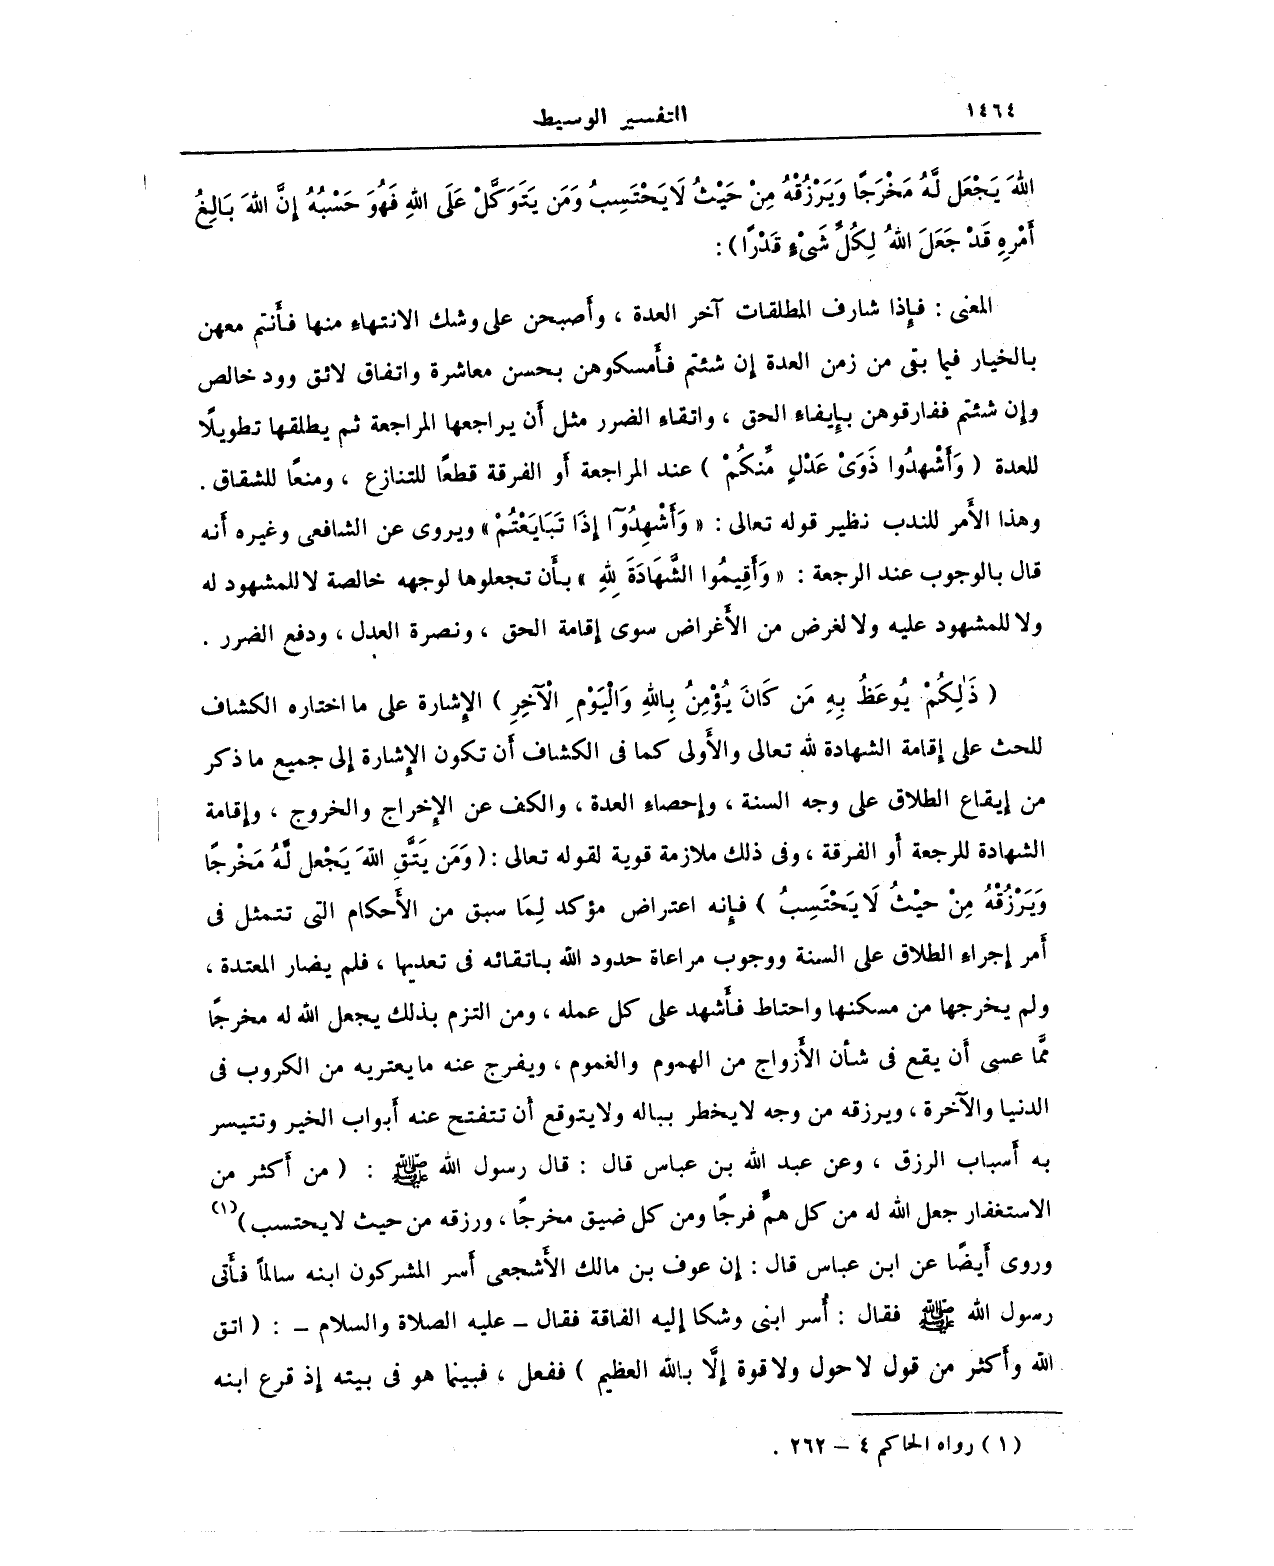 ١٤٦٤
التفسير الوسيط
اللهَ يَجْعَل لَّهُ مَخْرَجًا وَيَرْزُقْهُ مِنْ حَيْثُ لَا يَحْتَسِبُ وَمَن يَتَوَكَّلْ عَلَى اللهِ فَهُوَ حَسْبُهُ إِنَّ اللهَ بَالِغُ
أَمْرِهِ قَدْ جَعَلَ اللهُ لِكُلِّ شَىْءٍ قَدْرًا ) :
المعنى : فإِذا شارف المطلقات آخر العدة ، وأَصبحن على وشك الانتهاء منها فأَنتم معهن
بالخيار فيما بقى من زمن العدة إن شئتم فأَمسكوهن بحسن معاشرة واتفاق لائق وود خالص
وإن شئتم ففارقوهن بإِيفاء الحق ، واتقاء الضرر مثل أَن يراجعها المراجعة ثم يطلقها تطويلًا
للعدة ( وَأَشْهِدُوا ذَوَىْ عَدْلٍ مِّنكُمْ ) عند المراجعة أَو الفرقة قطعًا للتنازع ، ومنعًا للشقاق .
وهذا الأَمر للندب نظير قوله تعالى : « وَأَشْهِدُوٓا إِذَا تَبَايَعْتُمْ » ويروى عن الشافعى وغيره أَنه
قال بالوجوب عند الرجعة : « وَأَقِيمُوا الشَّهَادَةَ لِلهِ » بأَن تجعلوها لوجهه خالصة لا للمشهود له
ولا للمشهود عليه ولا لغرض من الأَغراض سوى إقامة الحق ، ونصرة العدل ، ودفع الضرر .
( ذَٰلِكُمْ يُوعَظُ بِهِ مَن كَانَ يُؤْمِنُ بِاللهِ وَالْيَوْمِ الْآخِرِ ) الإِشارة على ما اختاره الكشاف
للحث على إقامة الشهادة لله تعالى والأَولى كما فى الكشاف أَن تكون الإِشارة إلى جميع ما ذكر
من إيقاع الطلاق على وجه السنة ، وإحصاء العدة ، والكف عن الإِخراج والخروج ، وإقامة
الشهادة للرجعة أَو الفرقة ، وفى ذلك ملازمة قوية لقوله تعالى : ( وَمَن يَتَّقِ اللهَ يَجْعَل لَّهُ مَخْرَجًا
وَيَرْزُقْهُ مِنْ حَيْثُ لَا يَحْتَسِبُ ) فإِنه اعتراض مؤكد لِمَا سبق من الأَحكام التى تتمثل فى
أَمر إجراء الطلاق على السنة ووجوب مراعاة حدود الله باتقائه فى تعديها ، فلم يضار المعتدة ،
ولم يخرجها من مسكنها واحتاط فأَشهد على كل عمله ، ومن التزم بذلك يجعل الله له مخرجًا
مَّا عسى أَن يقع فى شأن الأَزواج من الهموم والغموم ، ويفرج عنه ما يعتريه من الكروب فى
الدنيا والآخرة ، ويرزقه من وجه لا يخطر بباله ولا يتوقع أَن تتفتح عنه أَبواب الخير وتتيسر
به أَسباب الرزق ، وعن عبد الله بن عباس قال : قال رسول الله ﷺ : ( من أَكثر من
الاستغفار جعل الله له من كل همٍّ فرجًا ومن كل ضيق مخرجًا ، ورزقه من حيث لا يحتسب )(١)
وروى أَيضًا عن ابن عباس قال : إن عوف بن مالك الأَشجعى أَسر المشركون ابنه سالمًا فأَتى
رسول الله ﷺ فقال : أُسر ابنى وشكا إليه الفاقة فقال ـ عليه الصلاة والسلام ـ : ( اتق
الله وأَكثر من قول لا حول ولا قوة إلَّا بالله العظيم ) ففعل ، فبينما هو فى بيته إذ قرع ابنه
( ١ ) رواه الحاكم ٤ – ٢٦٢ .